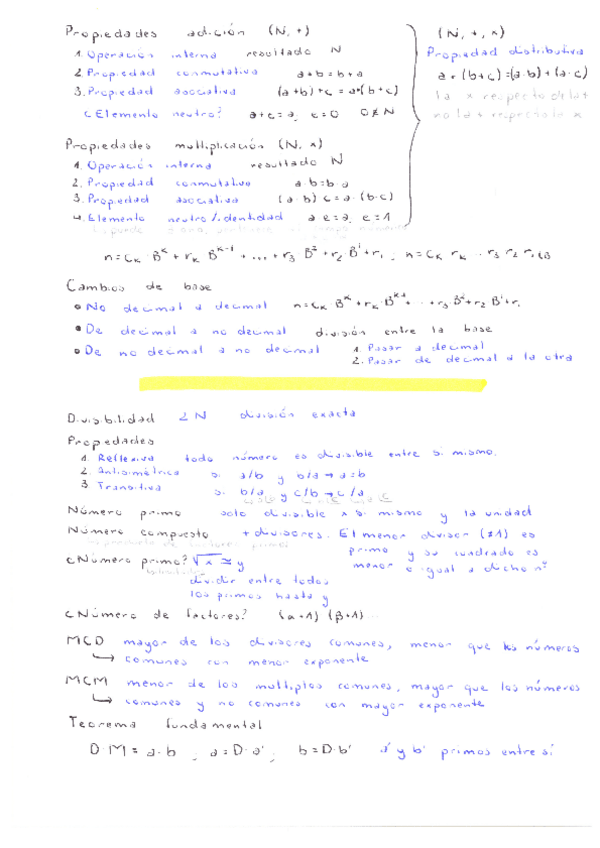 Propiedades adición (N, +)
1. Operación interna resultado N
2. Propiedad conmutativa a+b=b+a
3. Propiedad asociativa (a+b)+c=a+(b+c)
¿Elemento neutro? a+e=a, e=0 0∉N
Propiedades multiplicación (N, x)
1. Operación interna resultado N
2. Propiedad conmutativa a·b=b·a
3. Propiedad asociativa (a·b)·c=a·(b·c)
4. Elemento neutro/identidad a·e=a, e=1
(N, +, x)
Propiedad distributiva
a·(b+c)=(a·b)+(a·c)
la x respecto de la +
no la + respecto la x
n=c_K·B^K+r_K·B^(K-1)+...+r_3·B^2+r_2·B^1+r_1, n=c_K r_K ... r_3 r_2 r_1(B
Cambios de base
• No decimal a decimal n=c_K·B^K+r_K·B^(K-1)+...+r_3·B^2+r_2·B^1+r_1
• De decimal a no decimal división entre la base
• De no decimal a no decimal 1. Pasar a decimal
2. Pasar de decimal a la otra
Divisibilidad 2 N división exacta
Propiedades
1. Reflexiva todo número es divisible entre si mismo.
2. Antisimétrica si a/b y b/a → a=b
3. Transitiva si b/a y c/b → c/a
Número primo solo divisible x si mismo y la unidad
Número compuesto + divisores. El menor divisor (≠1) es
primo y su cuadrado es
menor o igual a dicho nº
¿Número primo? √x ≃ y
dividir entre todos
los primos hasta y
¿Número de factores? (α+1) (β+1) ...
MCD mayor de los divisores comunes, menor que los números
↪ comunes con menor exponente
MCM menor de los multiplos comunes, mayor que los números
↪ comunes y no comunes con mayor exponente
Teorema fundamental
D·M=a·b, a=D·a', b=D·b' a' y b' primos entre sí